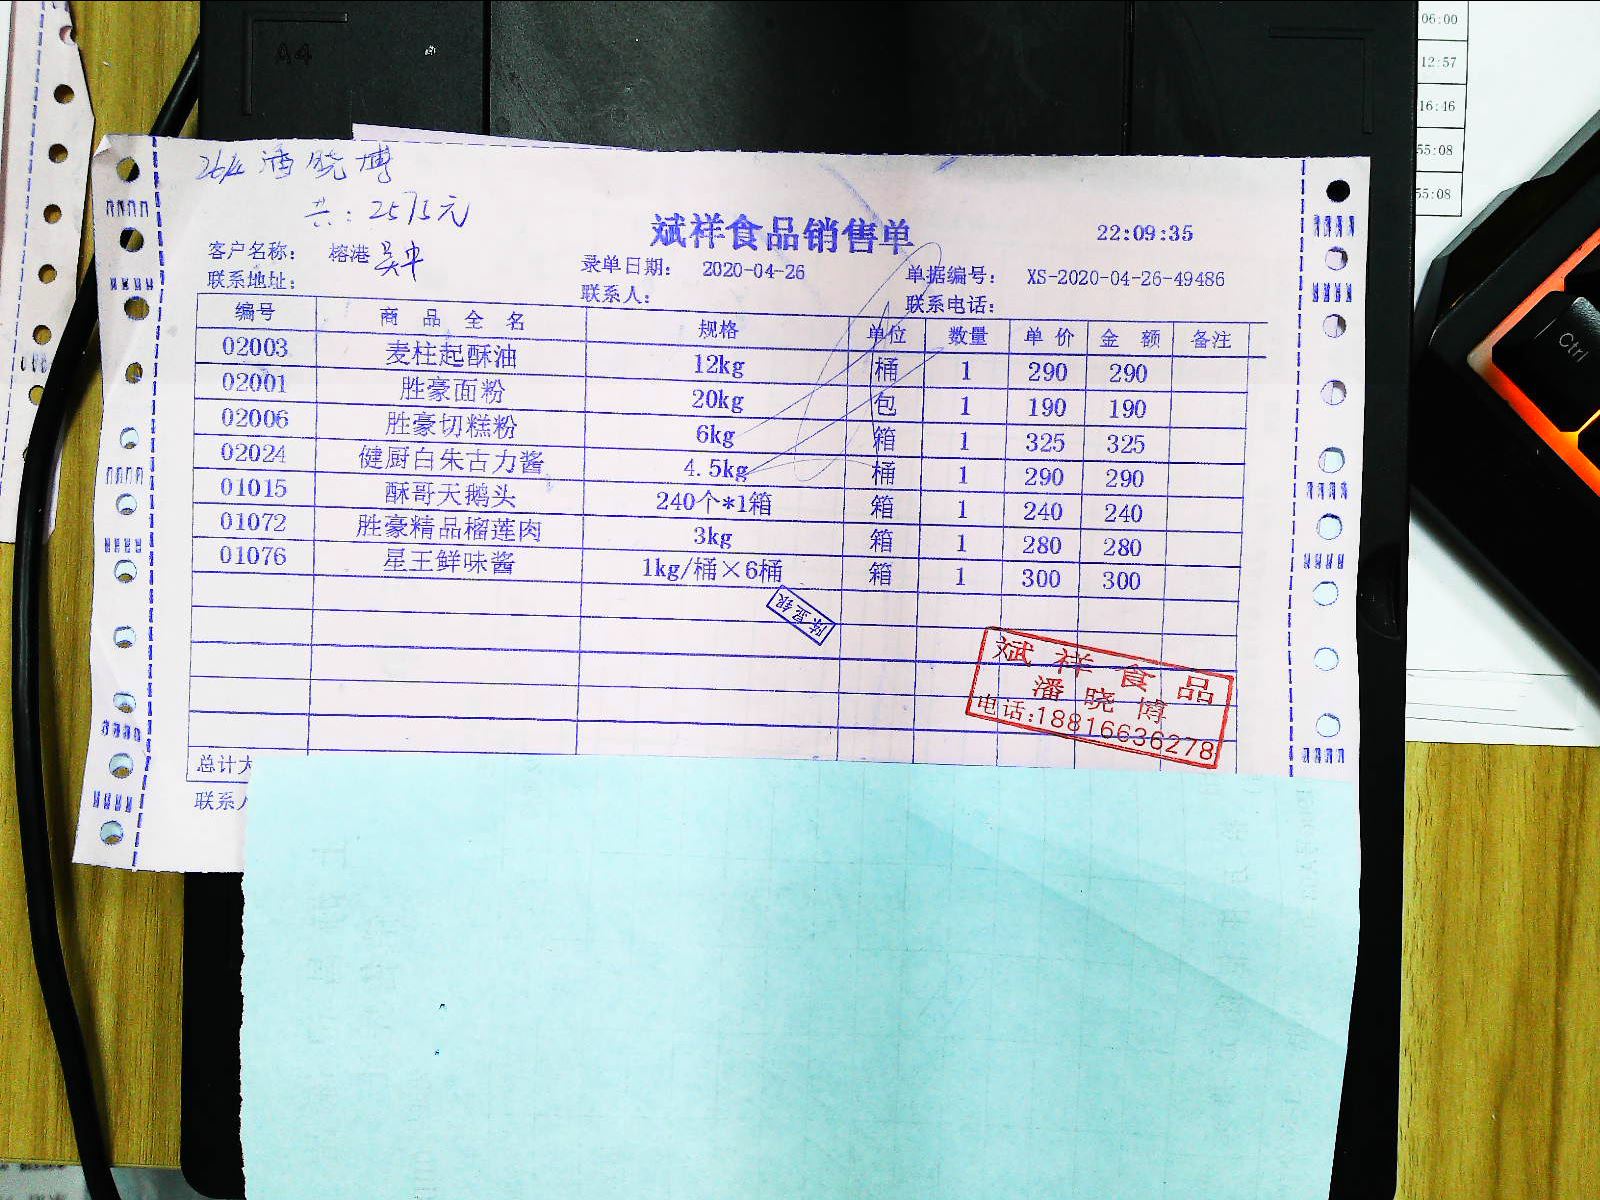 A4
06:00
12:57
16:46
55:08
55:08
26/4 潘晓博
共：2575元
斌祥食品销售单
22:09:35
客户名称： 榕港 录单日期： 2020-04-26 单据编号： XS-2020-04-26-49486
联系地址： 联系人： 联系电话：
编号 商品全名 规格 单位 数量 单价 金额 备注
02003 麦柱起酥油 12kg 桶 1 290 290
02001 胜豪面粉 20kg 包 1 190 190
02006 胜豪切糕粉 6kg 箱 1 325 325
02024 健厨白朱古力酱 4.5kg 桶 1 290 290
01015 酥哥天鹅头 240个*1箱 箱 1 240 240
01072 胜豪精品榴莲肉 3kg 箱 1 280 280
01076 星王鲜味酱 1kg/桶×6桶 箱 1 300 300
斌祥食品
潘晓博
电话:18816636278
总计大
联系人
Ctrl